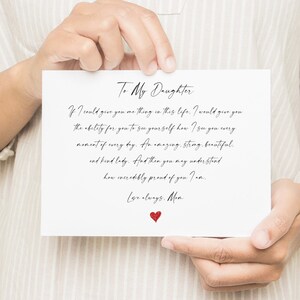 To My Daughter
If I could give you one thing in this life, I would give you
the ability for you to see yourself how I see you every
moment of every day. An amazing, strong, beautiful,
and kind lady. And then you may understand
how incredibly proud of you I am.
Love always, Mom